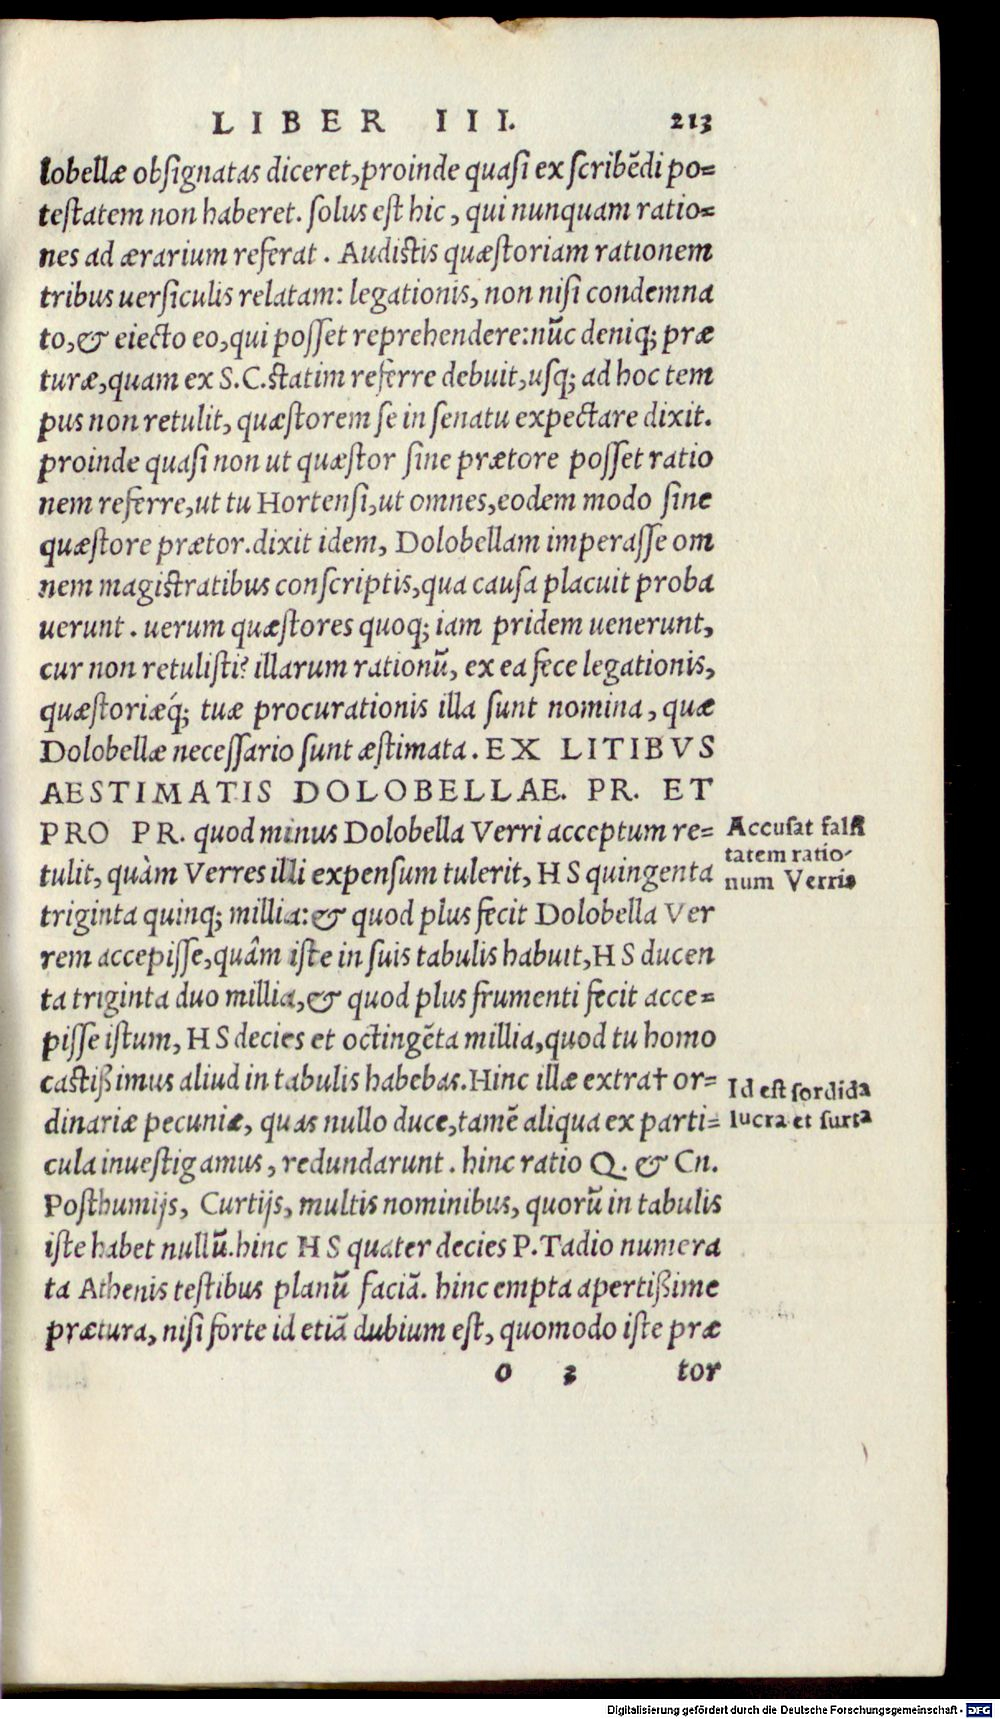 LIBER III. 213
lobellæ obsignatas diceret, proinde quasi ex scribẽdi po=
testatem non haberet. solus est hic, qui nunquam ratio=
nes ad ærarium referat. Audistis quæstoriam rationem
tribus uersiculis relatam: legationis, non nisi condemna
to, & eiecto eo, qui posset reprehendere: nũc deniq; præ
turæ, quam ex S.C. statim referre debuit, usq; ad hoc tem
pus non retulit, quæstorem se in senatu expectare dixit.
proinde quasi non ut quæstor sine prætore posset ratio
nem referre, ut tu Hortensi, ut omnes, eodem modo sine
quæstore prætor. dixit idem, Dolobellam imperasse om
nem magistratibus conscriptis, qua causa placuit proba
uerunt. uerum quæstores quoq; iam pridem uenerunt,
cur non retulisti? illarum rationũ, ex ea fece legationis,
quæstoriæq́; tuæ procurationis illa sunt nomina, quæ
Dolobellæ necessario sunt æstimata. EX LITIBVS
AESTIMATIS DOLOBELLAE. PR. ET
PRO PR. quod minus Dolobella Verri acceptum re=
tulit, quàm Verres illi expensum tulerit, HS quingenta
triginta quinq; millia: & quod plus fecit Dolobella Ver
rem accepisse, quâm iste in suis tabulis habuit, HS ducen
ta triginta duo millia, & quod plus frumenti fecit acce=
pisse istum, HS decies et octingẽta millia, quod tu homo
castißimus aliud in tabulis habebas. Hinc illæ extra† or=
dinariæ pecuniæ, quas nullo duce, tamẽ aliqua ex parti=
cula inuestigamus, redundarunt. hinc ratio Q. & Cn.
Posthumijs, Curtijs, multis nominibus, quorũ in tabulis
iste habet nullũ. hinc HS quater decies P. Tadio numera
ta Athenis testibus planũ faciã. hinc empta apertißime
prætura, nisi forte id etiã dubium est, quomodo iste præ
o 3 tor
Accusat falsi
tatem ratio-
num Verris
Id est sordida
lucra et furta
Digitalisierung gefördert durch die Deutsche Forschungsgemeinschaft - DFG